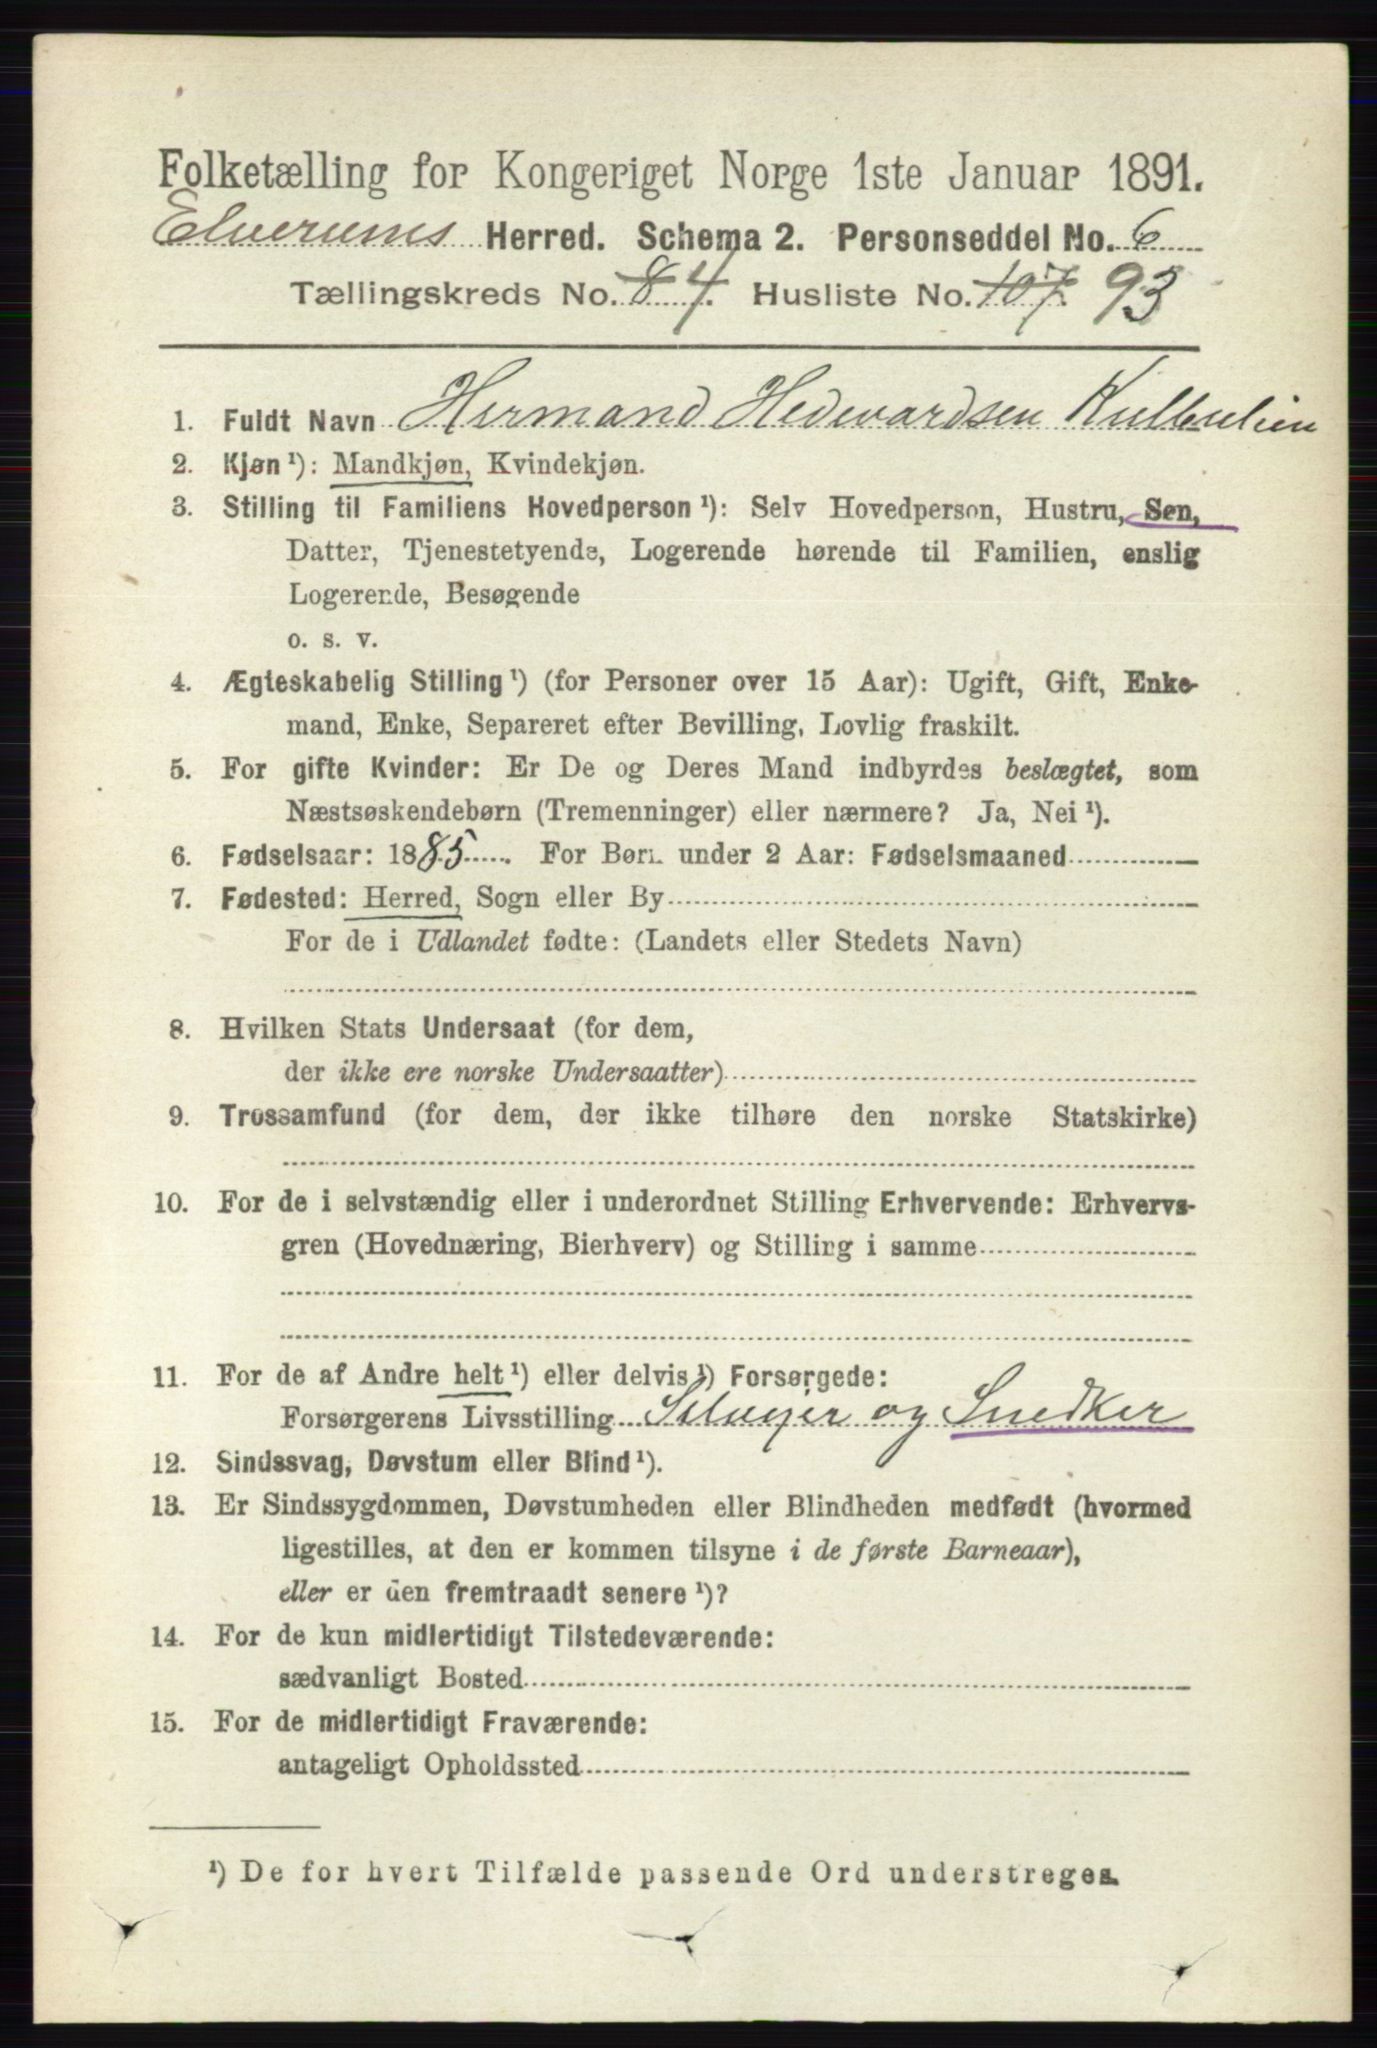 Folketælling for Kongeriget Norge 1ste Januar 1891.
Elverums Herred. Schema 2. Personseddel No. 6
Tællingskreds No. 8 4. Husliste No. 107. 93
1. Fuldt Navn Hermand Hedevardsen
2. Kjøn ¹): Mandkjøn, Kvindekjøn.
3. Stilling til Familiens Hovedperson ¹): Selv Hovedperson, Hustru, Søn,
Datter, Tjenestetyende, Logerende hørende til Familien, enslig
Logerende, Besøgende
o. s. v.
4. Ægteskabelig Stilling ¹) (for Personer over 15 Aar): Ugift, Gift, Enke-
mand, Enke, Separeret efter Bevilling, Lovlig fraskilt.
5. For gifte Kvinder: Er De og Deres Mand indbyrdes beslægtet, som
Næstsøskendebørn (Tremenninger) eller nærmere? Ja, Nei ¹).
6. Fødselsaar: 1885. For Børn under 2 Aar: Fødselsmaaned
7. Fødested: Herred, Sogn eller By
For de i Udlandet fødte: (Landets eller Stedets Navn)
8. Hvilken Stats Undersaat (for dem,
der ikke ere norske Undersaatter)
9. Trossamfund (for dem, der ikke tilhøre den norske Statskirke)
10. For de i selvstændig eller i underordnet Stilling Erhvervende: Erhvervs-
gren (Hovednæring, Bierhverv) og Stilling i samme
11. For de af Andre helt ¹) eller delvis ¹) Forsørgede:
Forsørgerens Livsstilling Selveier og Snedker
12. Sindssvag, Døvstum eller Blind ¹).
13. Er Sindssygdommen, Døvstumheden eller Blindheden medfødt (hvormed
ligestilles, at den er kommen tilsyne i de første Barneaar),
eller er den fremtraadt senere ¹)?
14. For de kun midlertidigt Tilstedeværende:
sædvanligt Bosted
15. For de midlertidigt Fraværende:
antageligt Opholdssted
¹) De for hvert Tilfælde passende Ord understreges.